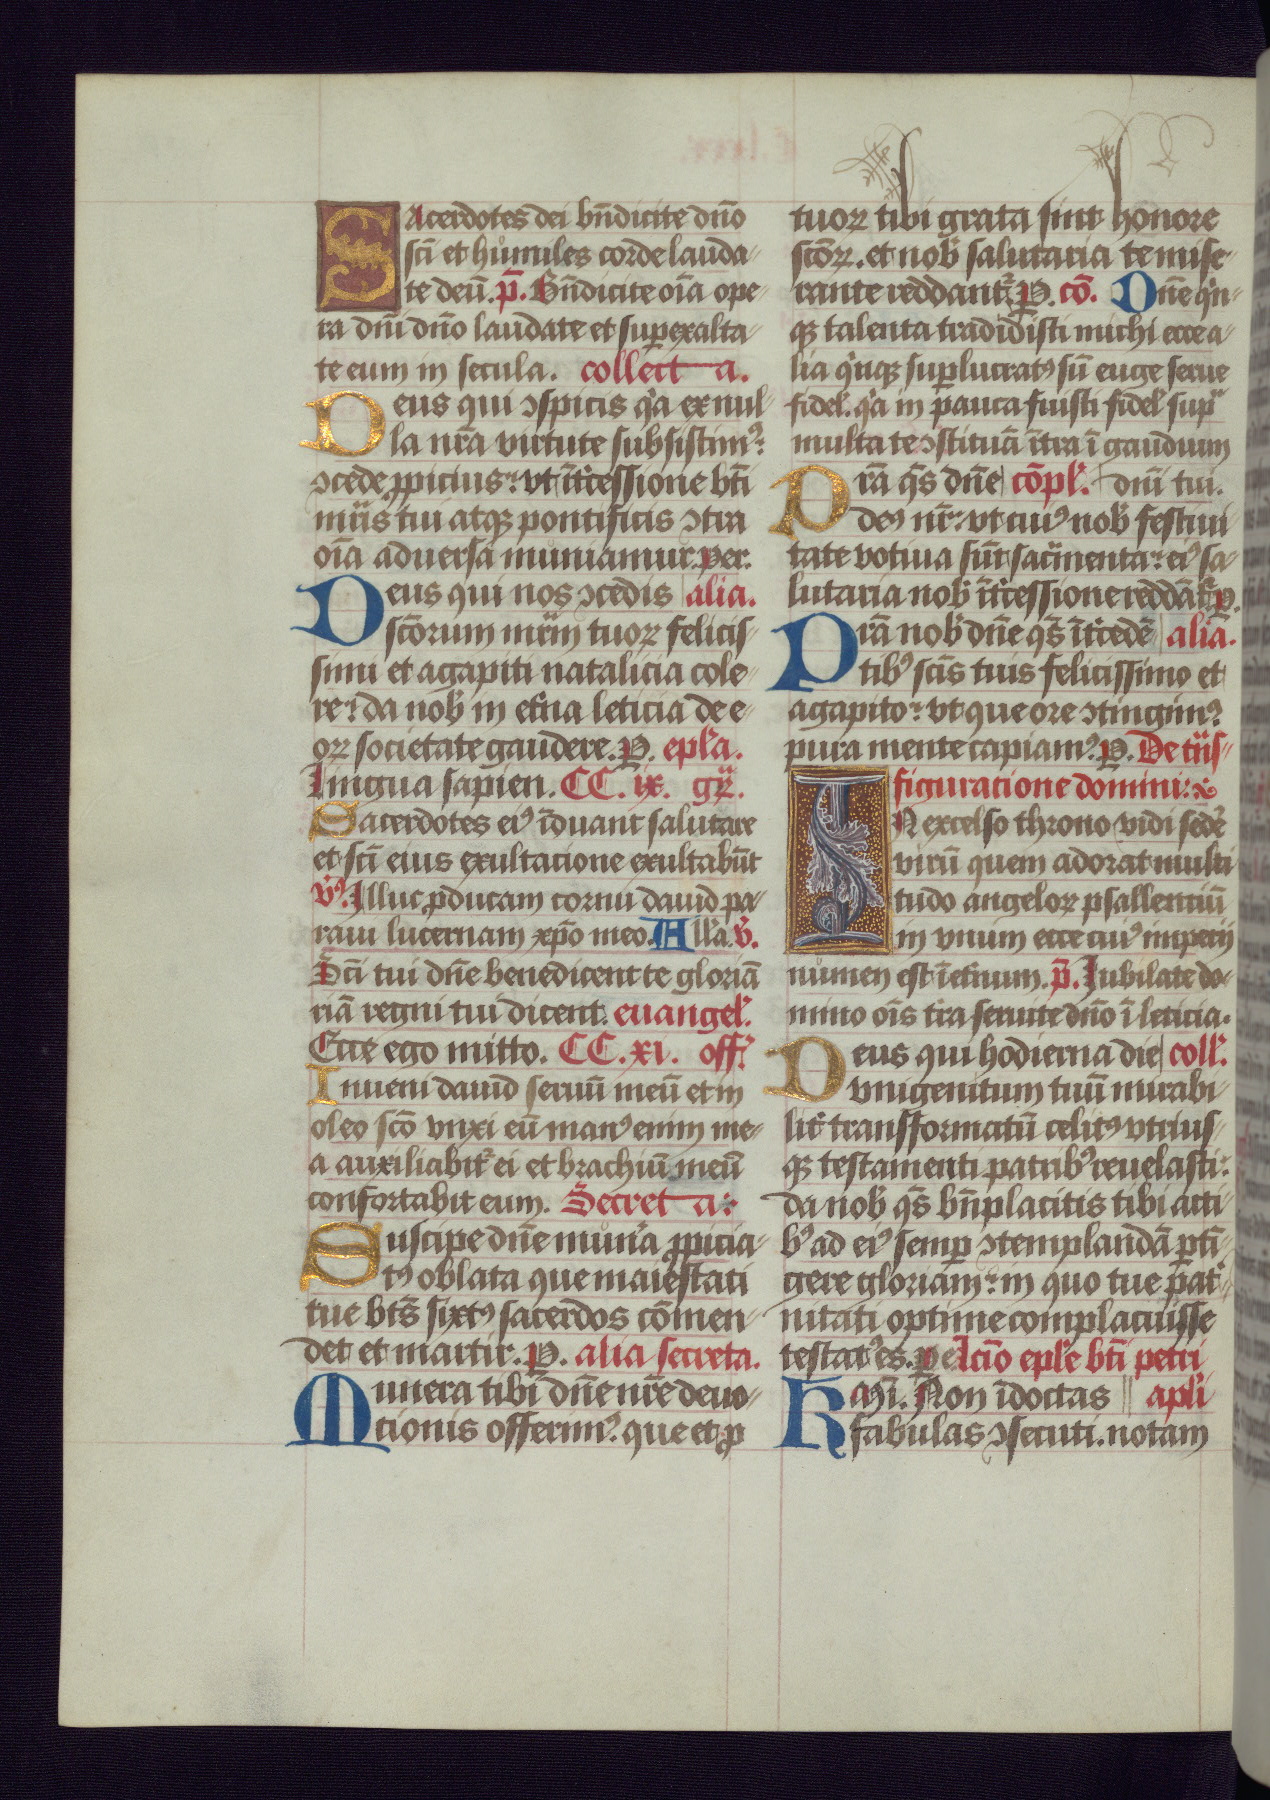 Sacerdotes dei bn̄dicite dn̄o
sc̄i et humiles corde lauda-
te deū. p̄. Bn̄dicite oīa ope-
ra dn̄i dn̄o laudate et superexalta-
te eum in secula. collecta.
Deus qui ꝯspicis qͥa ex nul-
la nr̄a virtute subsistimꝰ:
ꝯcede ꝓpicius: vt īt͛cessione bt̄i
mr̄is tui atqꝫ pontificis ꝯtra
oīa aduersa muniamur. per.
Deus qui nos ꝯcedis alia.
sc̄torum mr̄m tuoꝝ felicis-
simi et agapiti natalicia cole-
re: da nob̄ in et͛na leticia de e-
oꝝ societate gaudere. P. epl̄a.
Lingua sapien. CC. ix. gr̄.
Sacerdotes eiꝰ īduant salutare
et sc̄i eius exultacione exultabūt
v̄ꝰ. Illuc ꝓducam cornu dauid pa-
raui lucernam xp̄o meo. All̄a. v̄.
Sc̄i tui dn̄e benedicent te gloriā
riā regni tui dicent. euangel̄.
Ecce ego mitto. CC. xi. off̄.
Inueni dauid seruū meū et in
oleo sc̄o vnxi eū manꝰ enim me-
a auxiliabit͛ ei et brachiū meū
confortabit eum. Secreta:
Suscipe dn̄e mun͛a ꝓpicia-
tꝰ oblata que maiestati
tue bt̄s sixtꝰ sacerdos cōmen-
det et martir. P. alia secreta.
Munera tibi dn̄e nr̄e deuo-
cionis offerimꝰ. que et ꝓ
tuoꝝ tibi grata sint honore
sc̄oꝝ. et nob̄ salutaria te mise-
rante reddant͛. P. cō. Dn̄e qͥn-
qꝫ talenta tradidisti michi ecce a-
lia qͥnqꝫ suꝑlucratꝰ sū euge serue
fidel̄. qͥa in pauca fuisti fidel̄ supͣ
multa te ꝯstituā ītra ī gaudium
Prā qs̄ dn̄e cōpl̄. dn̄i tui.
deꝰ nr̄: vt cuiꝰ nob̄ festiui-
tate votiua sūt sacͣmenta: eiꝰ sa-
lutaria nob̄ īt͛cessione reddāt͛. p.
Prā nob̄ dn̄e qs̄ īt͛cedē aliā.
tibꝰ scīs tuis felicissimo et
agapito: vt que ore ꝯtingimꝰ
pura mente capiamꝰ. P. De trās-
figuracione domini:
IN excelso throno vidi sedēe
virū quem adorat multi-
tudo angeloꝝ psallentiū
in vnum ecce cuiꝰ imperij
numen est ī et͛num. p̄. Jubilate do-
mino oīs t͛ra seruite dn̄o ī leticia.
Deus qui hodierna die coll̄.
vnigenitum tuū mirabi-
lit͛ transformatū celitꝰ vtrius-
qꝫ testamenti patribꝰ reuelasti:
da nob̄ qs̄ bn̄placitis tibi acti-
bꝰ ad eiꝰ semꝑ ꝯtemplandā ꝑti-
gere gloriam: in quo tue pat͛-
nitati optime complacuisse
testatꝰ es. per Lc̄io epl̄e bt̄i petri
Kar̄i. Non īdoctas apl̄i
fabulas ꝯsecuti. notam